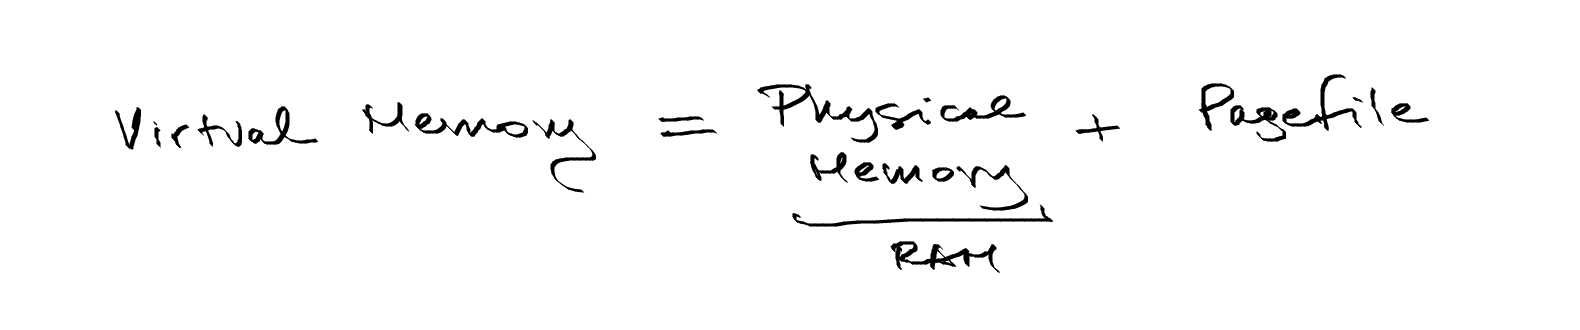 Virtual Memory = Physical Memory + Pagefile
RAM